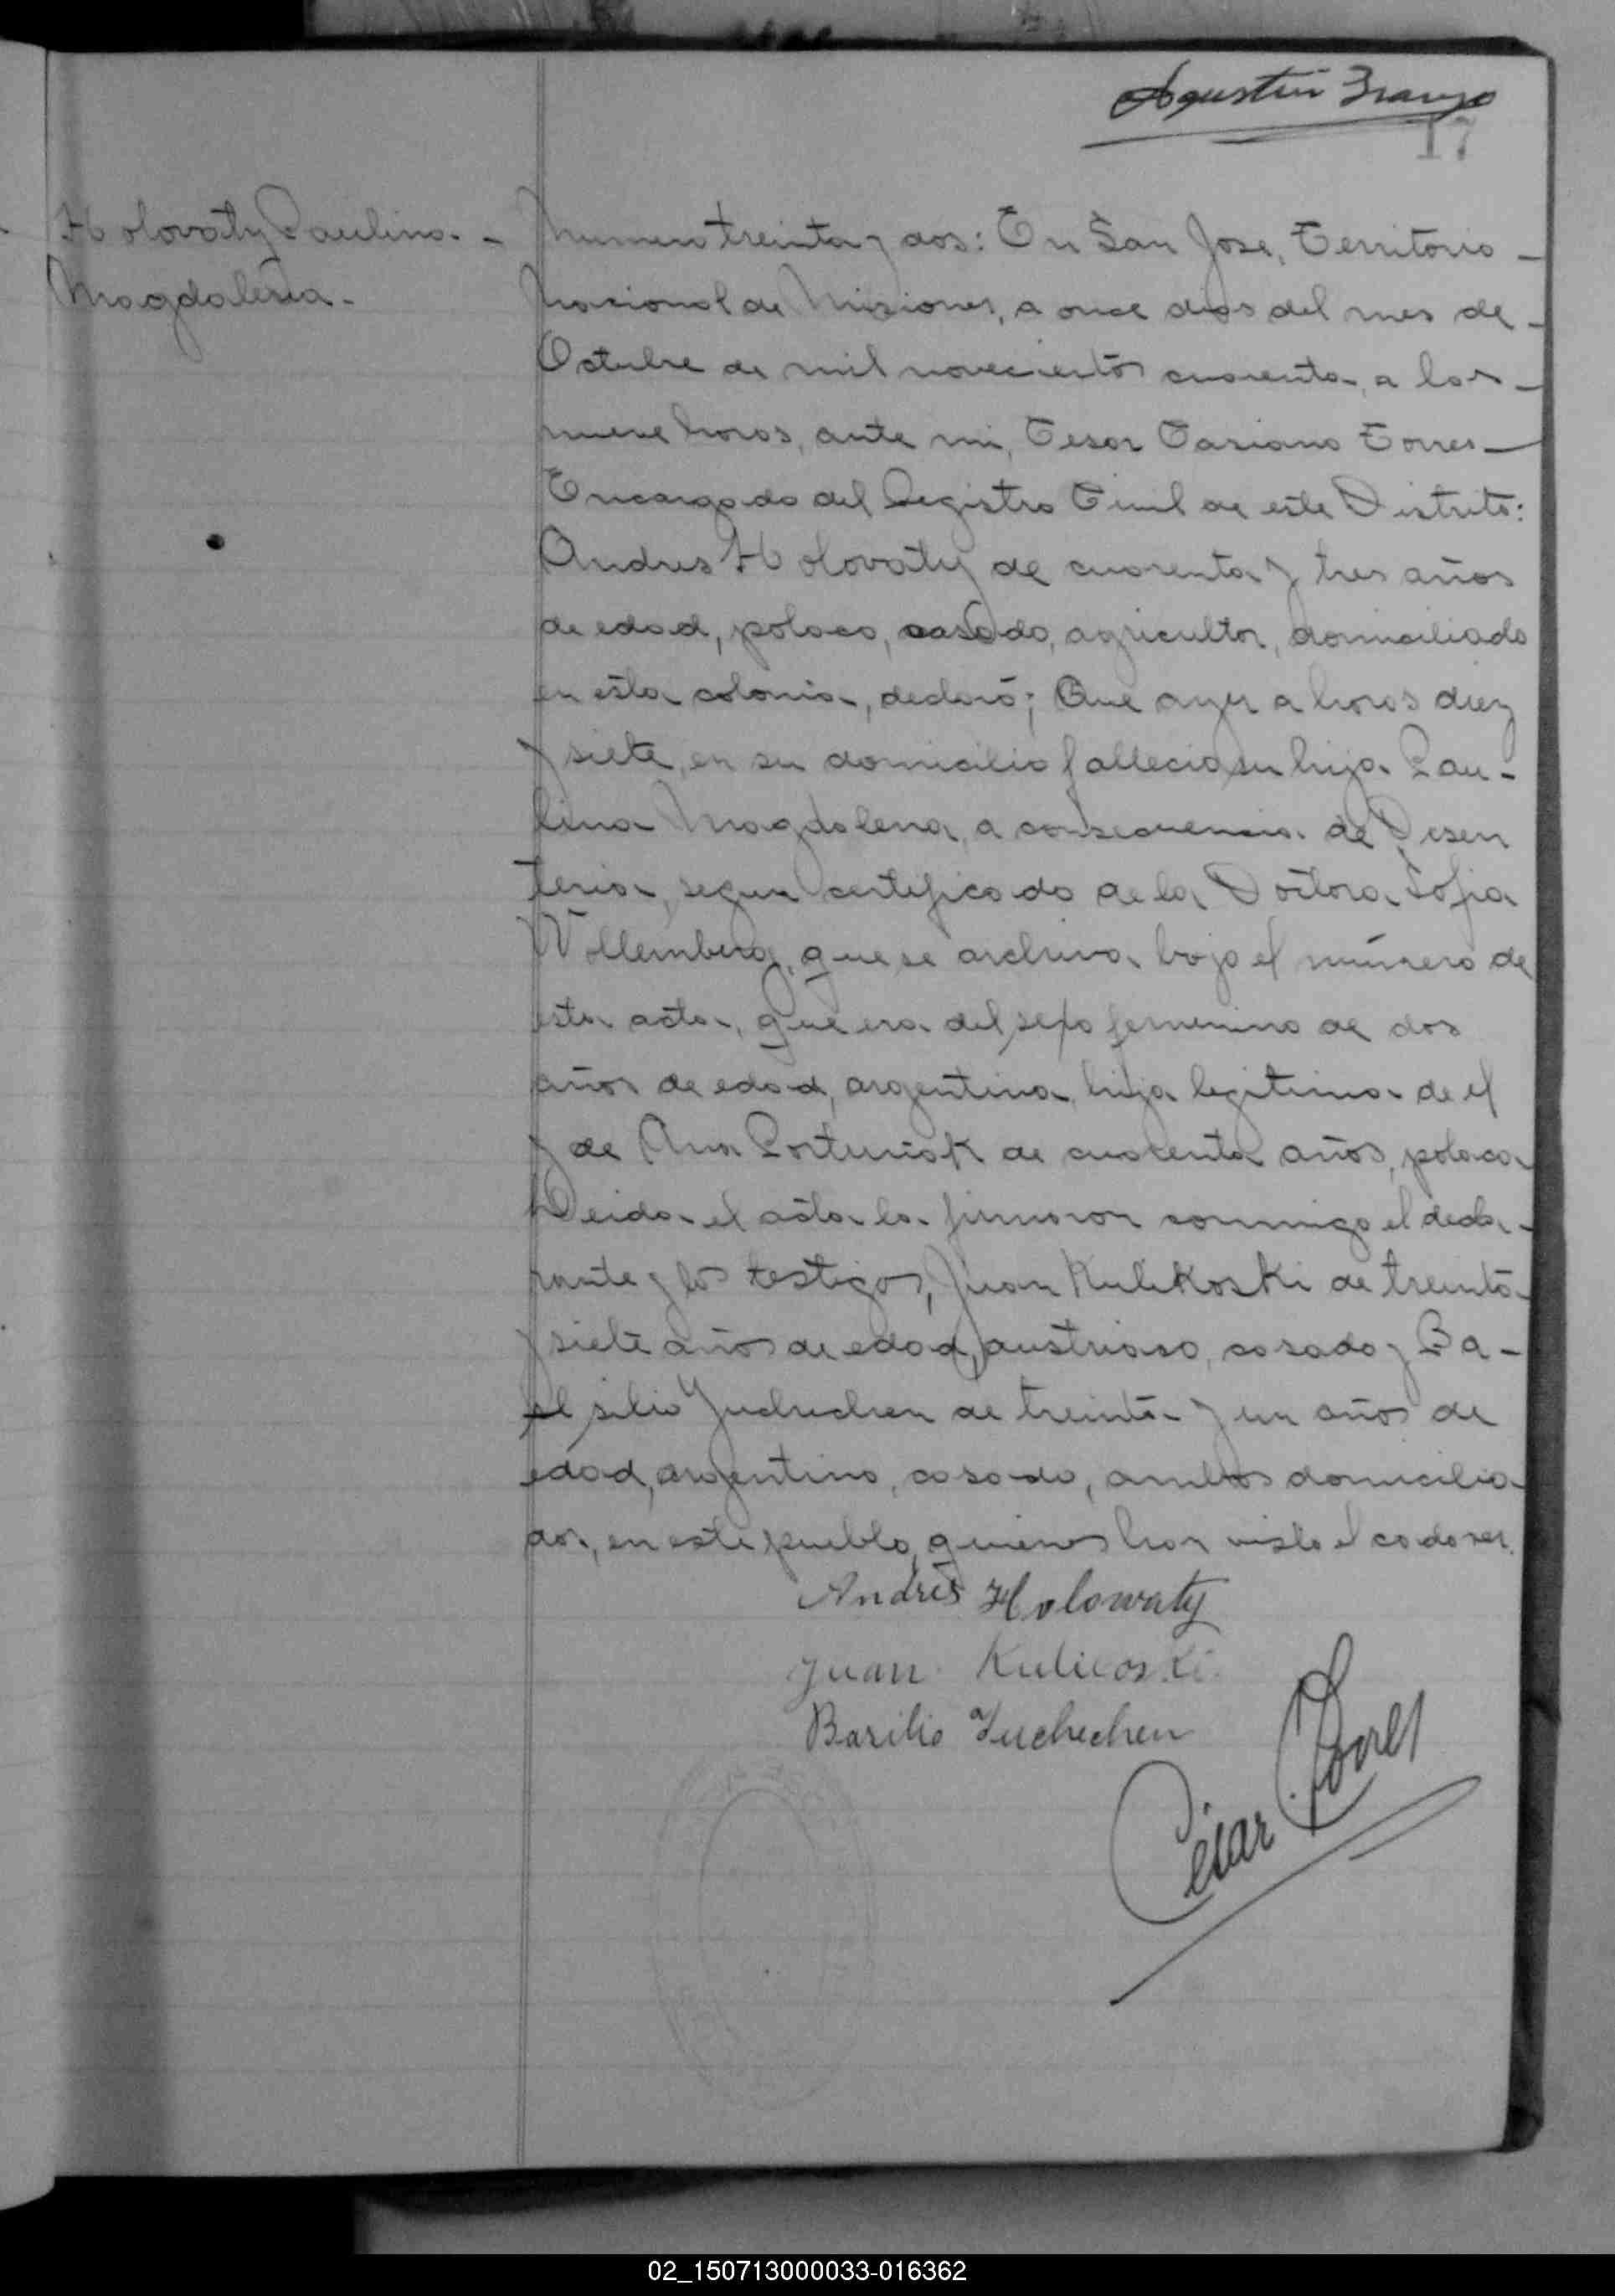 Agustin
17
Holovaty Paulina -
Magdalena -
Numero treinta y dos: En San Jose, Territorio -
Nacional de Misiones, a once dias del mes de -
Octubre de mil novecientos cuarenta, a las -
nueve horas, ante mi, Cesar Torres -
Encargado del Registro Civil de este Distrito:
Andres Holovaty de cuarenta y tres años
de edad, polaco, casado, agricultor, domiciliado
en esta colonia, declaró; Que ayer a horas diez
y siete, en su domicilio fallecio su hija Pau-
lina Magdalena, a consecuencia de Disen
teria, segun certificado de la Doctora Sofia
Wollemberg, que se archiva bajo el número de
esta acta, que era del sexo femenino de dos
años de edad, argentina, hija legitima de el
y de Ana de cuarenta años, polaca
Leida el acta la firmaron conmigo el decla-
rante y los testigos, Juan Kulikoski de treinta
y siete años de edad, austriaco, casado y Ba-
silio Juchechen de treinta y un años de
edad, argentino, casado, ambos domicilia
dos, en este pueblo, quienes han visto el cadaver.
Andrés Holowaty
Juan Kulicoski
Basilio Yuchechen
César Torres
02_150713000033-016362